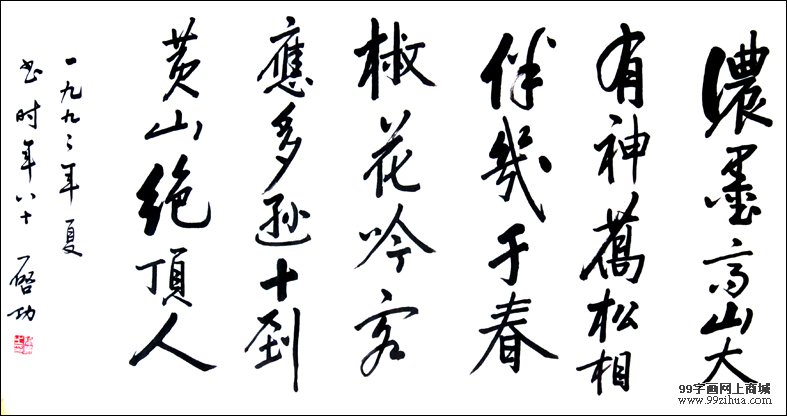 濃墨高山大
有神舊松相
伴幾千春
椒花吟客
應多遜十到
黄山絶頂人
一九九二年夏
书时年八十 啓功
99字画网上商城
www.99zihua.com